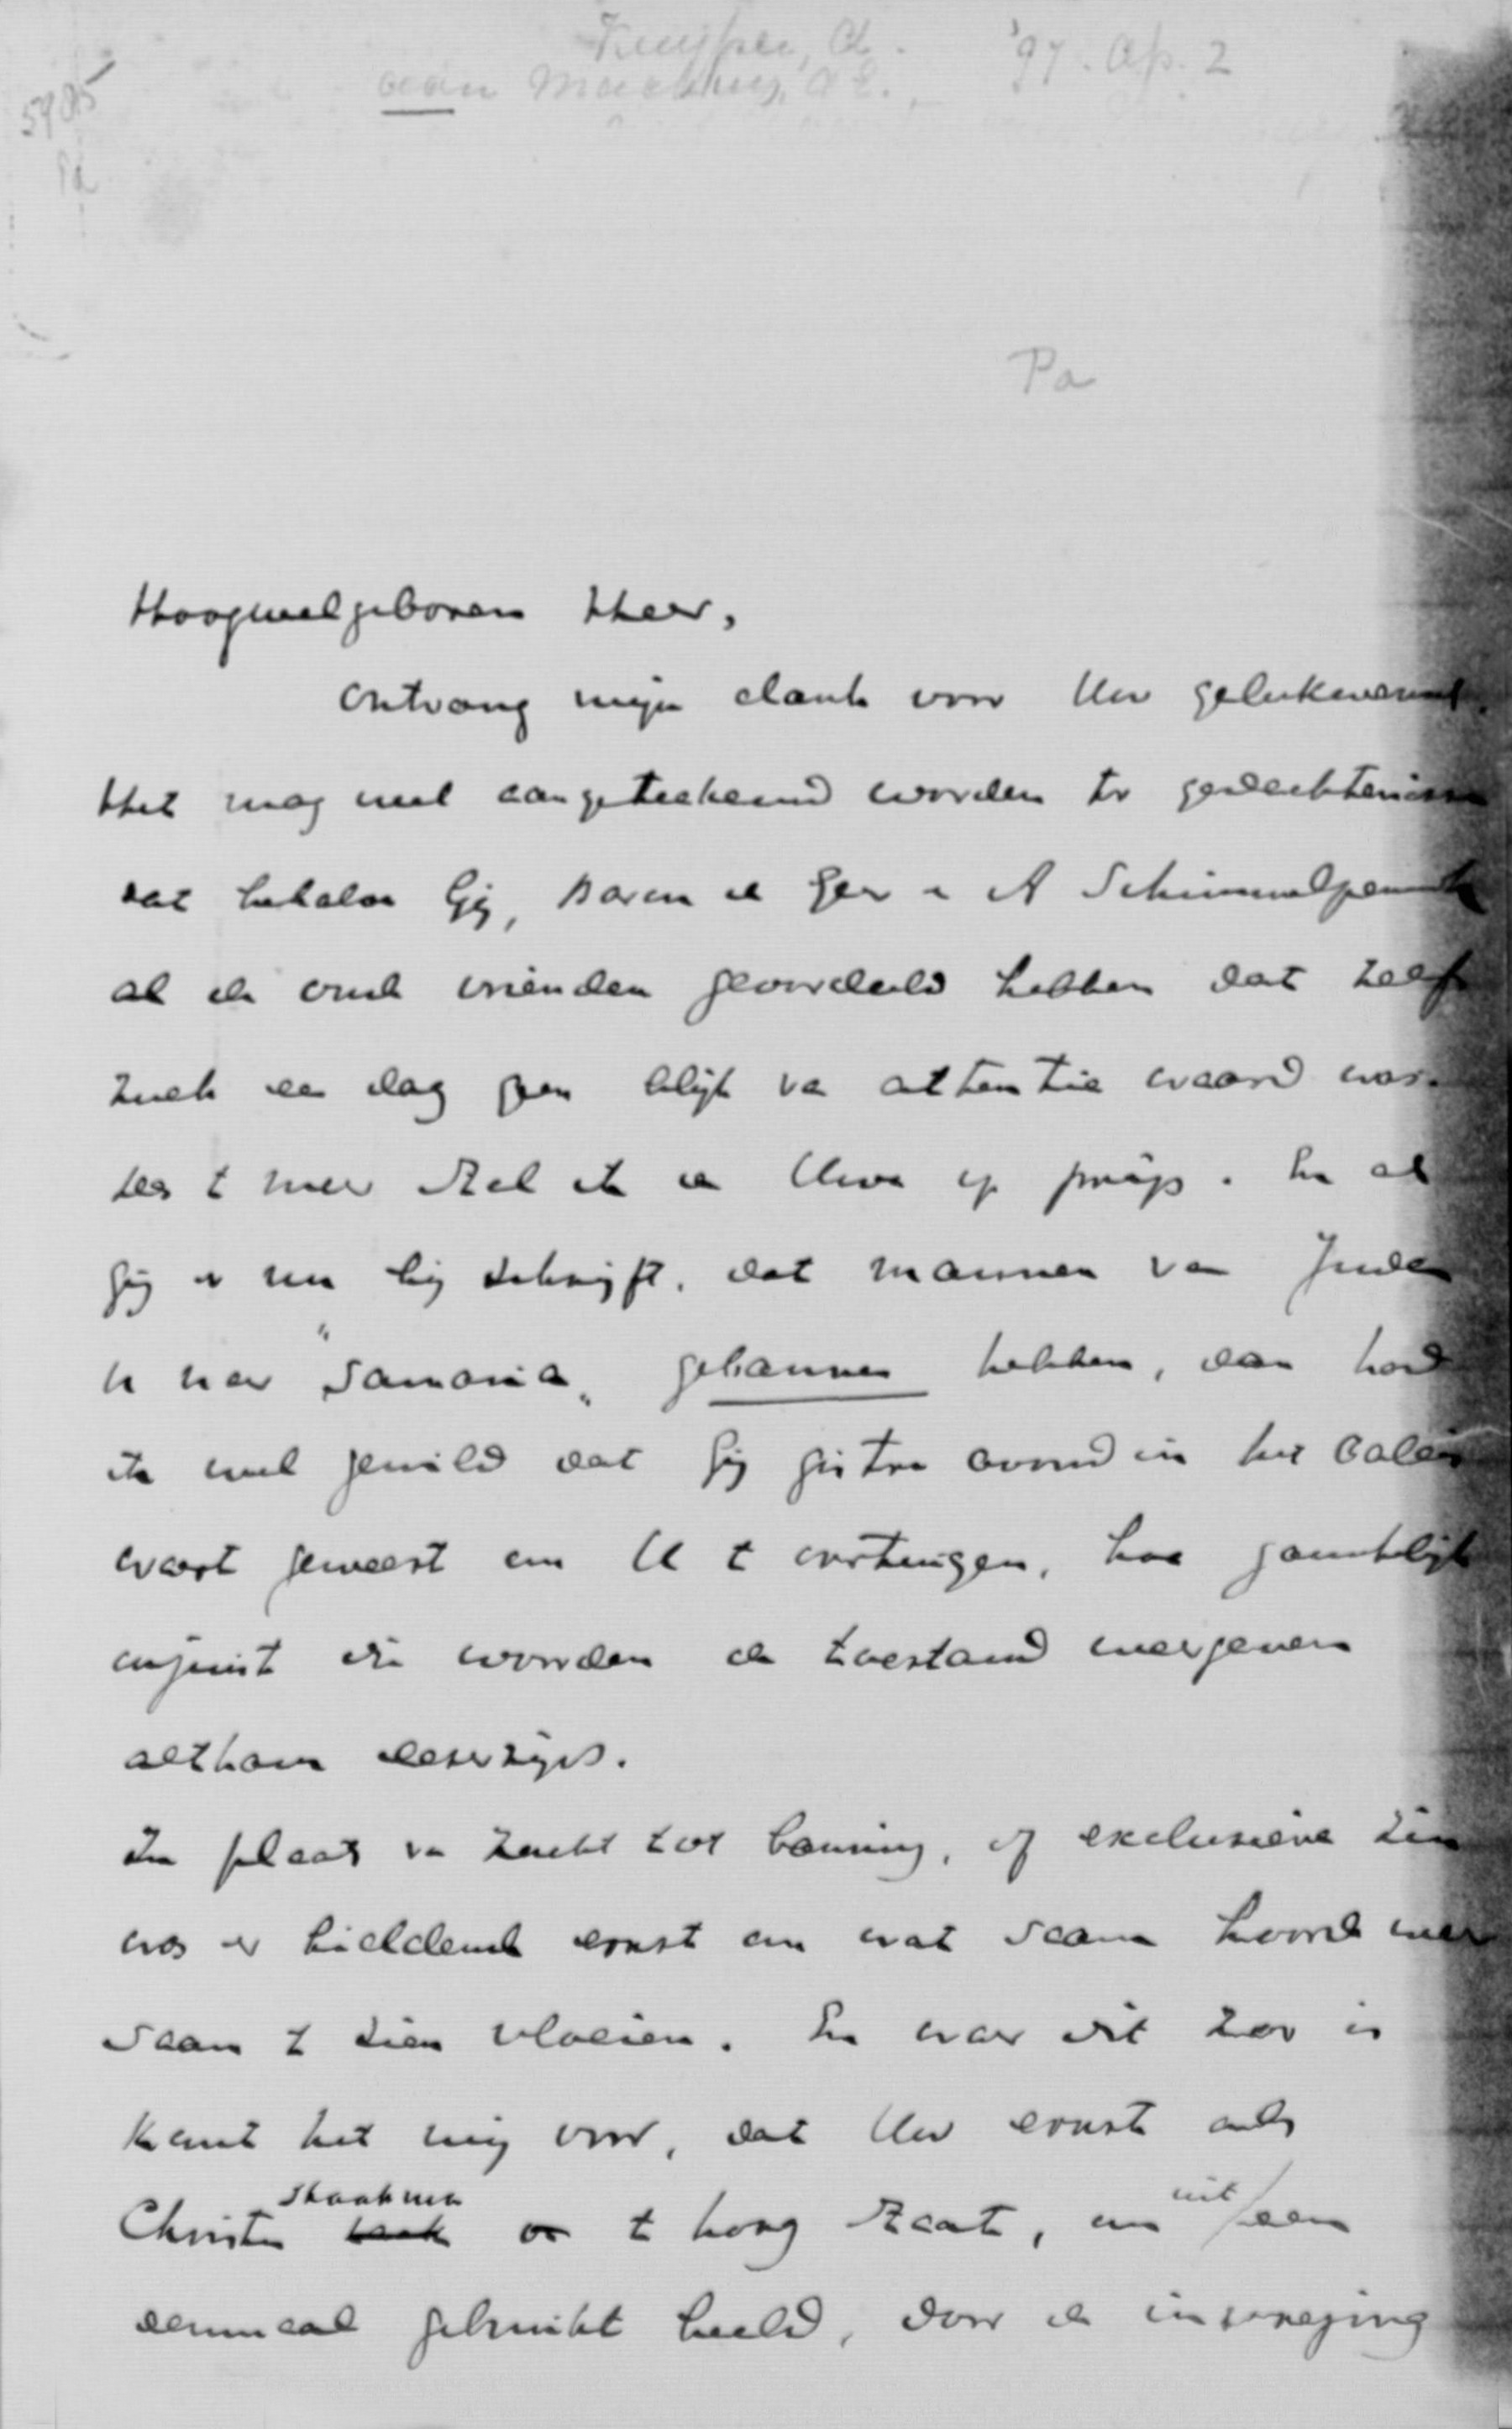 Kuyper, A. '97. Ap. 2
aan Mackay, A E.
5905
Pa
Pa
Hoogwelgeboren Heer,
Ontvang mijn dank voor Uw gelukwensch.
Het mag wel aangeteekend worden ter gedachtenisse
dat behalve Gij, Baron de Geer en A Schimmelpenninck
al de oude vrienden geoordeeld hebben dat zelfs
zulk een dag geen blijk van attentie waard was.
Des te meer stel ik de Uwe op prijs. En als
Gij er nu bij schrijft, dat mannen van Juda
U naar "Samaria" gebannen hebben, dan had
ik wel gewild dat Gij gisteren avond in het Paleis
waart geweest om U te overtuigen, hoe gantschelijk
onjuist die woorden de toestand weergeven
althans deserzijds.
In plaats van zucht tot banning, of exclusieve zin
was er biddend ernst om wat saam hoort weer
saam te zien vloeien. En waar dit zoo is
komt het mij voor, dat Uw ernst als
Christen staatsman te hoog staat, om uit een
eenmaal gebruikt beeld, door de